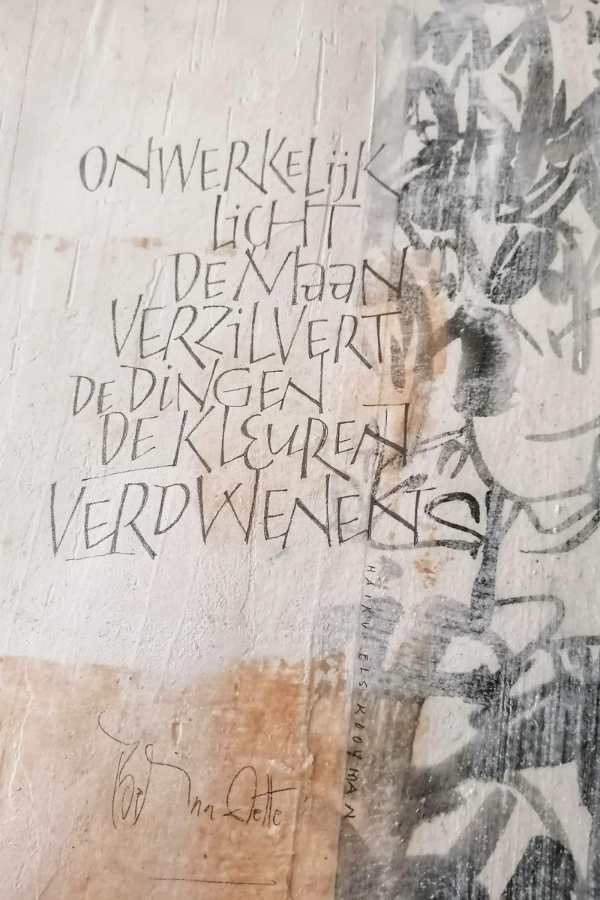 ONWERKELijK
LiCHT
DE MaaN
VERZiLVERT
DE DiNGEN
DE KLEUREN
HAIKU ELS KOOYMAN